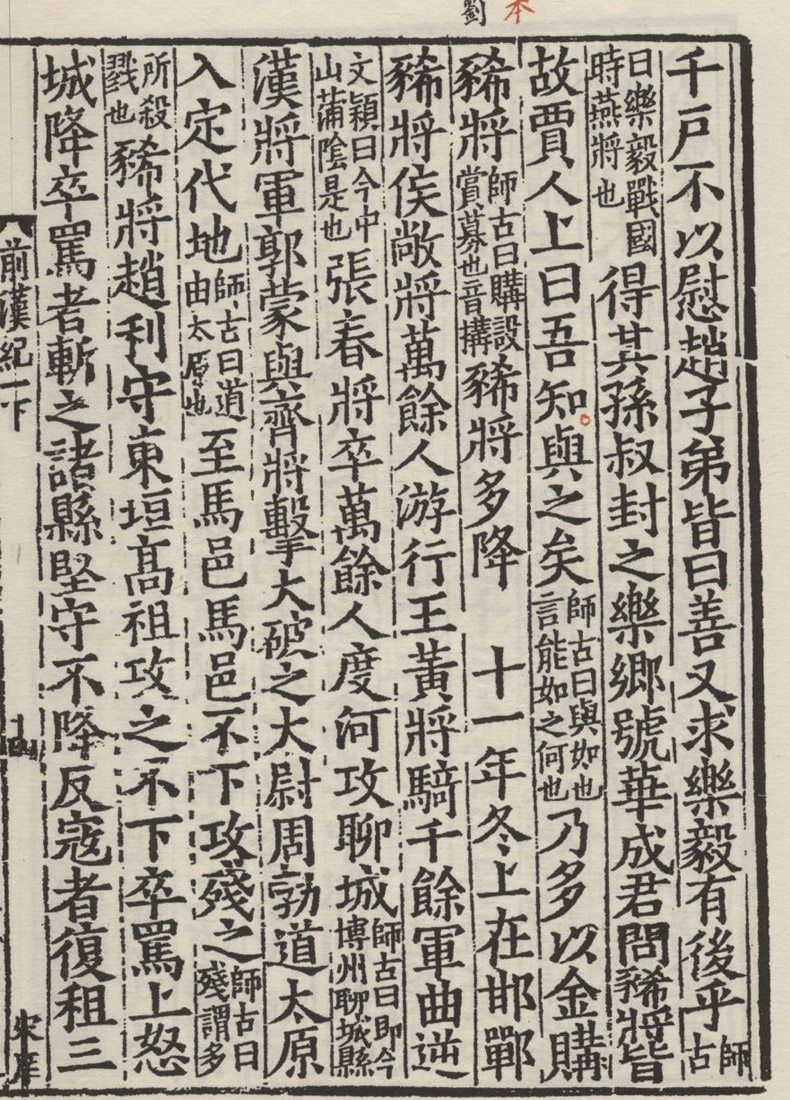 本
劉
千戸不以慰趙子弟皆曰善又求樂毅有後乎師古
曰樂毅戰國時燕將也得其孫叔封之樂鄉號華成君問豨將皆
故賈人上曰吾知與之矣師古曰與如也言能如之何也乃多以金購
豨將師古曰購設賞募也音搆豨將多降 十一年冬上在邯鄲
豨將侯敞將萬餘人游行王黃將騎千餘軍曲逆
文穎曰今中山蒲陰是也張春將卒萬餘人度河攻聊城師古曰即今博州聊城縣
漢將軍郭蒙與齊將擊大破之大尉周勃道太原
入定代地師古曰道由太原也至馬邑馬邑不下攻殘之師古曰殘謂多
所殺戮也豨將趙利守東垣高祖攻之不下卒罵上怒
城降卒罵者斬之諸縣堅守不降反寇者復租三
前漢紀一下
十四